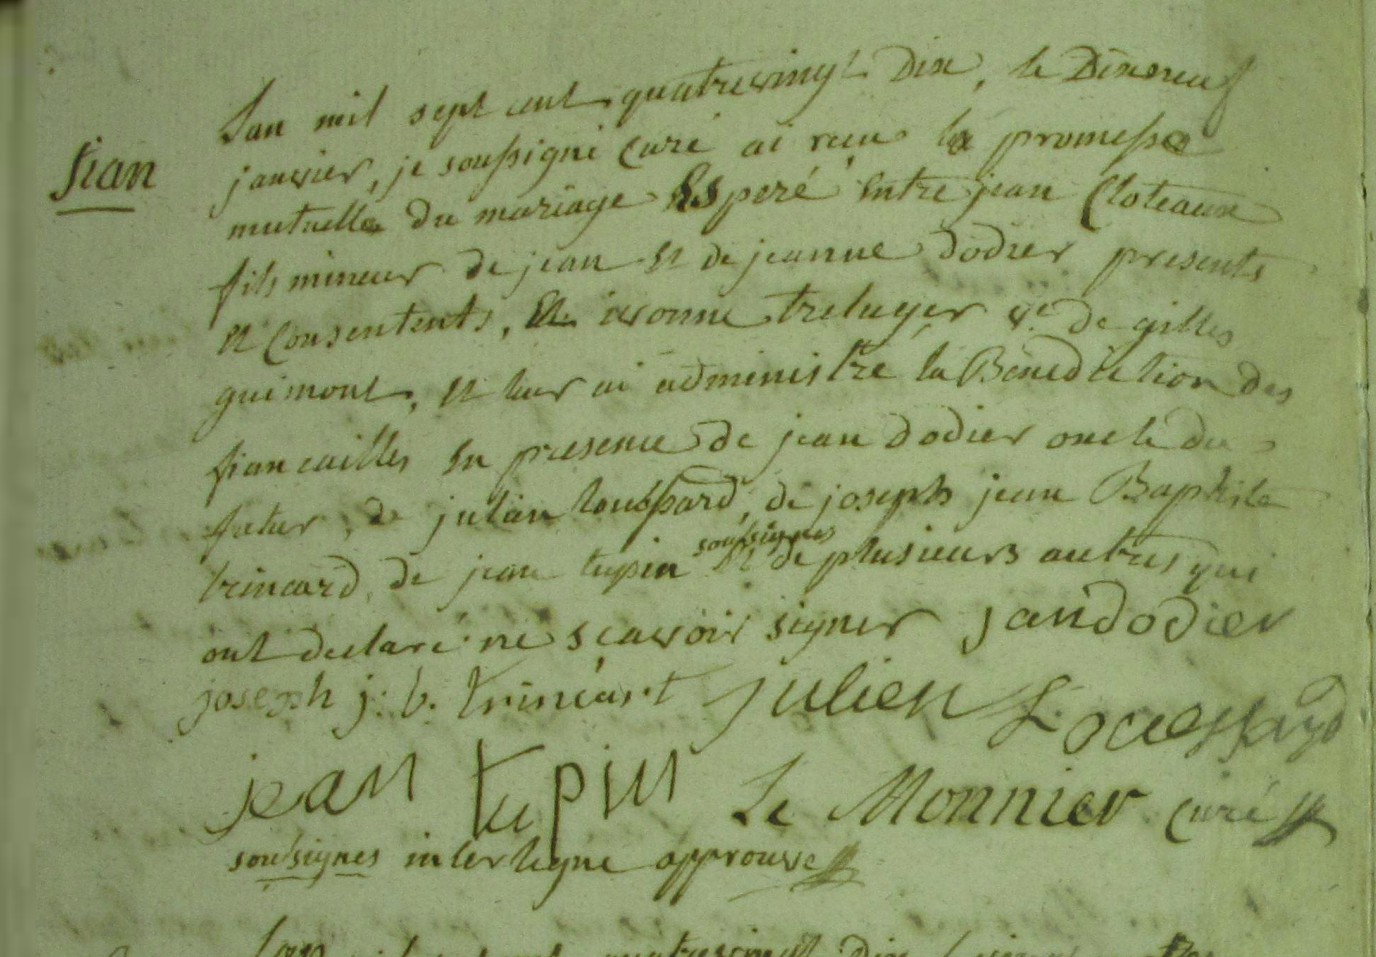 fian
L'an mil sept cent quatrevingt Dix, le Dixneuf
janvier, je soussigné Curé ai recu la promesse
mutuelle du mariage Esperé Entre jean Cloteaux
fils mineur de jean Et de jeanne dodier presents
Et Consentents, Et ivonne treluyer ve de gilles
guimont, Et leur ai administré la Bénédiction des
fiancailles En presence de jean dodier oncle du
futur, de julien loussard, de joseph jean Baptiste
trincard, de jean tupin soussignes Et de plusieurs autres qui
ont declaré ne scavoir signer jandodier
joseph j. b. trincart julien
jean tupin Le Monnier Curé
soussignes interligne approuvé